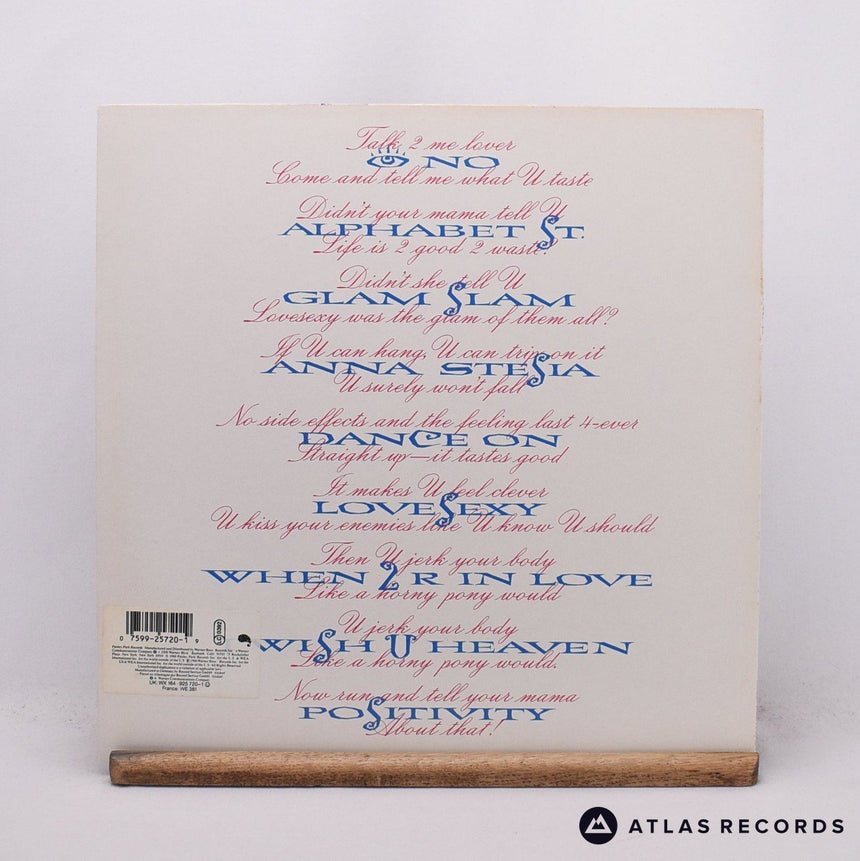 Talk 2 me lover
NO
Come and tell me what U taste
Didn't your mama tell U
ALPHABET ST.
Life is 2 good 2 waste?
Didn't she tell U
GLAM SLAM
Lovesexy was the glam of them all?
If U can hang, U can trip on it
ANNA STESIA
U surely won't fall
No side effects and the feeling last 4-ever
DANCE ON
Straight up—it tastes good
It makes U feel clever
LOVESEXY
U kiss your enemies like U know U should
Then U jerk your body
WHEN 2 R IN LOVE
Like a horny pony would
U jerk your body
WISH U HEAVEN
Like a horny pony would.
Now run and tell your mama
POSITIVITY
About that!
0 7599-25720-1 9
LC 0392
UK: WX 164 · 925 720-1
France: WE 381
ATLAS RECORDS